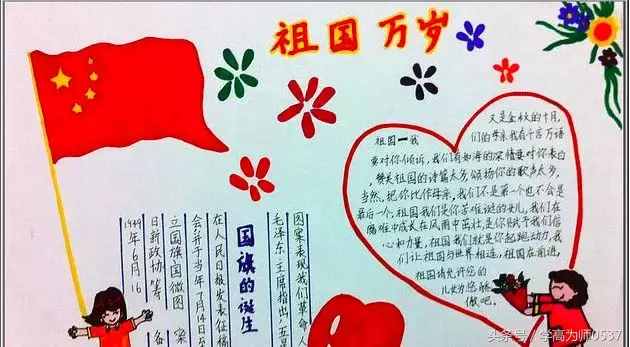 祖国万岁
又是金秋的十月,
祖国一我
们的母亲我有千言万语
要对你倾诉,我们有如海的深情要对你表白
,赞美祖国的诗篇太多,倾扬你的歌声太多,
当然,把你比作母亲,我们不是第一个也不会是
最后一个,祖国我们是你苦难的女儿,我们在
难中成长在风雨中茁壮,是你赋予我们信
心和力量,祖国我们就是你起跑动力,我
们让祖国与世界相连,祖国在前进,
祖国请允许您的
儿女为您骄
傲吧。
国旗的诞生
1949年6月16
日新政协筹备
立国旗国徽图案
会并于当年7月14日至
在人民日报发表征稿
毛泽东主席指出:五星
图案表现我们革命人
头条号 / 学高为师0537